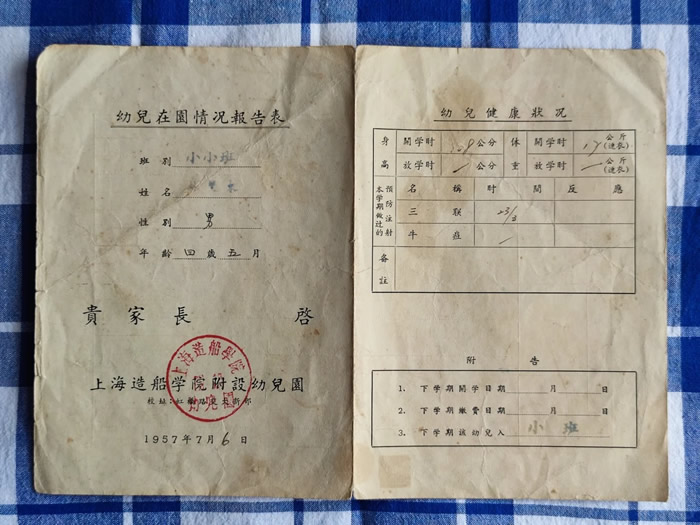 幼兒在園情况報告表
班别 小小班
姓名
性别 男
年齡 四歲 五月
貴家長 啓
上海造船学院附設幼兒園
校址:虹橋路
1957年7月6日
上海造船學院
幼兒園
幼兒健康狀况
身高 開学时 公分 体重 開学时 17 公斤(連衣)
放学时 公分 放学时 公斤(連衣)
本学期做过的預防注射 名稱 时間 反應
三联 23/3
牛痘
备註
附告
1. 下学期開学日期 月 日
2. 下学期繳費日期 月 日
3. 下学期該幼兒入 小班